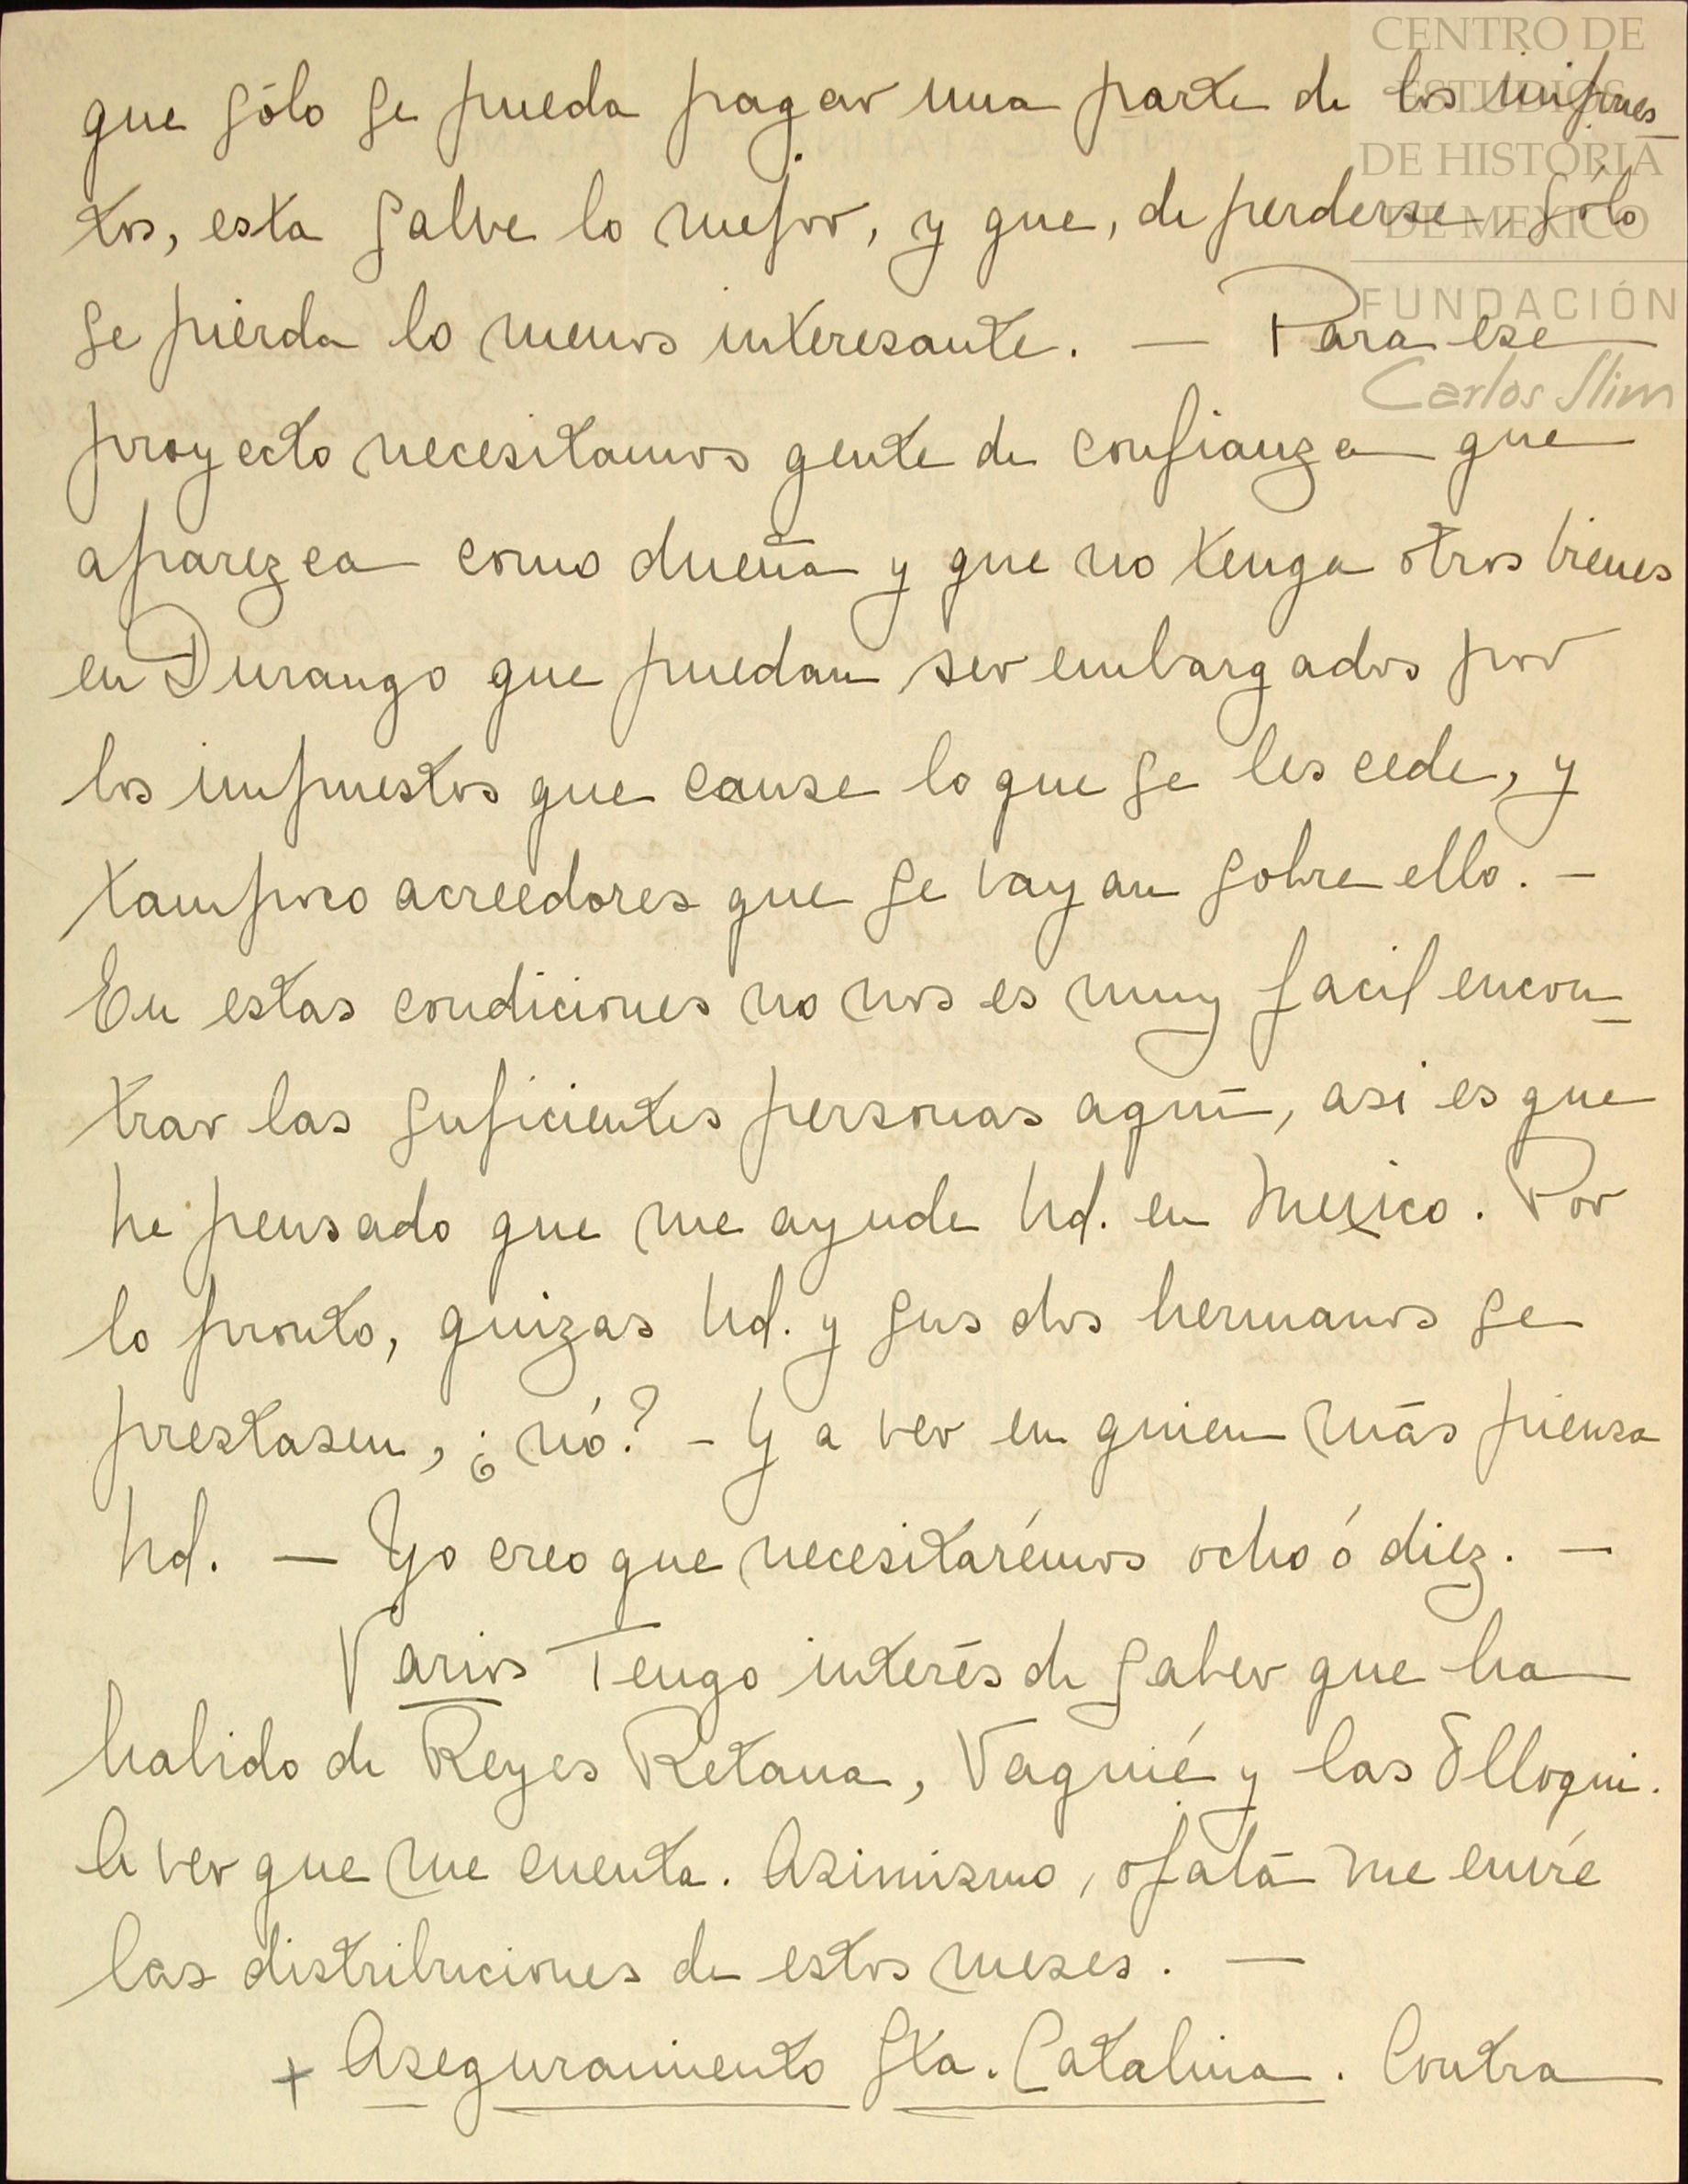 CENTRO DE
ESTUDIOS
DE HISTORIA
DE MEXICO
FUNDACIÓN
Carlos Slim
que sólo se pueda pagar una parte de los impues-
tos, esta salve lo mejor, y que, de perderse, sólo
se pierda lo menos interesante. — Para ese
proyecto necesitamos gente de confianza que
aparezca como dueña y que no tenga otros bienes
en Durango que puedan ser embargados por
los impuestos que cause lo que se les cede, y
tampoco acreedores que se vayan sobre ello. —
En estas condiciones no nos es muy facil encon-
trar las suficientes personas aquí, asi es que
he pensado que me ayude Ud. en Mexico. Por
lo pronto, quizas Ud. y sus dos hermanos se
prestasen, ¿nó? – Y a ver en quien más piensa
Ud. — Yo creo que necesitarémos ocho ó diez. —
Varios Tengo interés de saber que ha
habido de Reyes Retana, Vaguié y las Olloqui.
A ver que me cuenta. Asimismo, ojalá me envíe
las distribuciones de estos meses. —
+ Aseguramiento Sta. Catalina. Contra